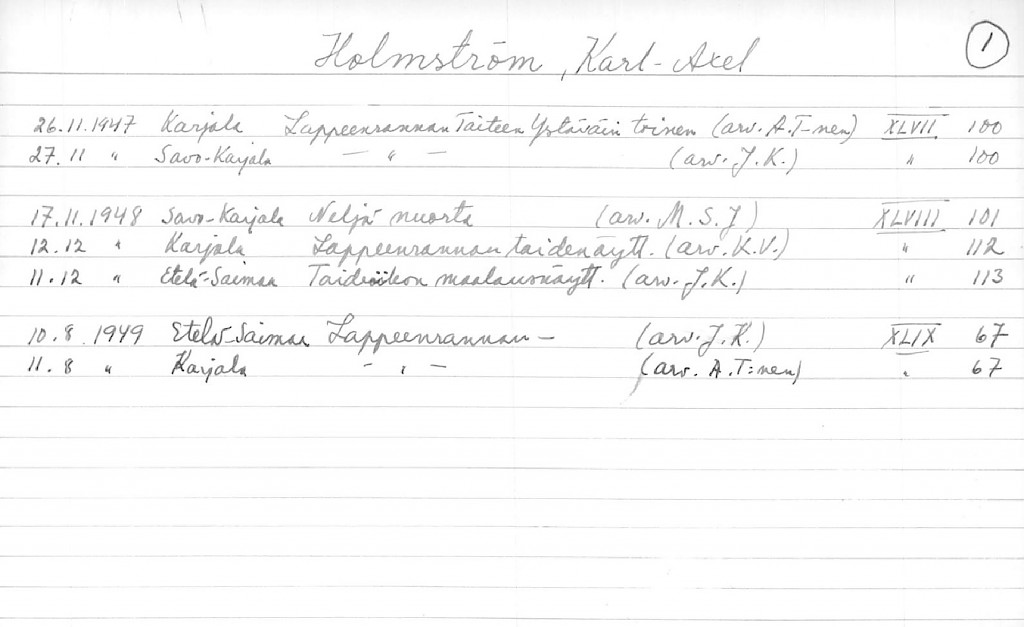 Holmström, Karl-Axel 1
26.11.1947 Karjala Lappeenrannan Taiteen Ystäväin toinen (arv. A.T-nen) XLVII 100
27.11 " Savo-Karjala — " — (arv. J.K.) " 100
17.11.1948 Savo-Karjala Neljä nuorta (arv. M.S.J) XLVIII 101
12.12 " Karjala Lappeenrannan taidenäytt. (arv. K.V.) " 112
11.12 " Etelä-Saimaa Taideviikon maalausnäytt. (arv. J.K.) " 113
10.8.1949 Etelä-Saimaa Lappeenrannan — (arv. J.K.) XLIX 67
11.8 " Karjala — " — (arv. A.T:nen) " 67